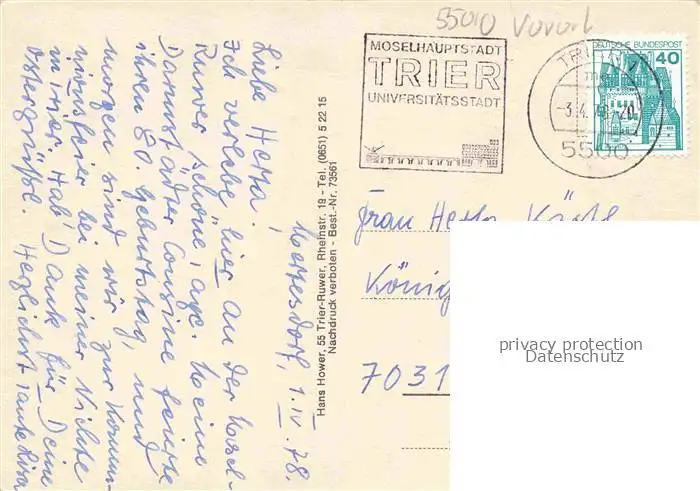 55010 Vorort
MOSELHAUPTSTADT
TRIER
UNIVERSITÄTSSTADT
DEUTSCHE BUNDESPOST
40
TRIER
-3.4.78-20
5500
Mertesdorf, 1. IV. 78.
Liebe Herta!
Ich verlebe hier an der Mosel-
Ruwer schöne Tage. Meine
Darmstädter Cousine feierte
ihren 80. Geburtstag, und
morgen sind wir zur Kommu-
nionsfeier bei meiner Nichte
in Trier. Hab' Dank für Deine
Ostergrüße. Herzlichst
Hans Hower, 55 Trier-Ruwer, Rheinstr. 19 - Tel. (0651) 5 22 15
Nachdruck verboten - Best.-Nr. 73561
Frau Herta
König
7031
privacy protection
Datenschutz